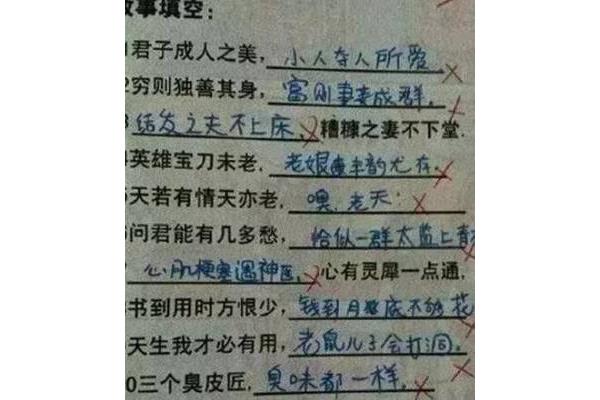 故事填空：
1君子成人之美，小人夺人所爱
2穷则独善其身，富则妻妾成群，
3结发之夫不上床，糟糠之妻不下堂.
4英雄宝刀未老，老娘风韵尤存，
5天若有情天亦老，噢，老天：
6问君能有几多愁，恰似一群太监上青
7心肌梗塞遇神医，心有灵犀一点通，
书到用时方恨少，钱到月底不够花
天生我才必有用，老鼠儿子会打洞.
0三个臭皮匠，臭味都一样，